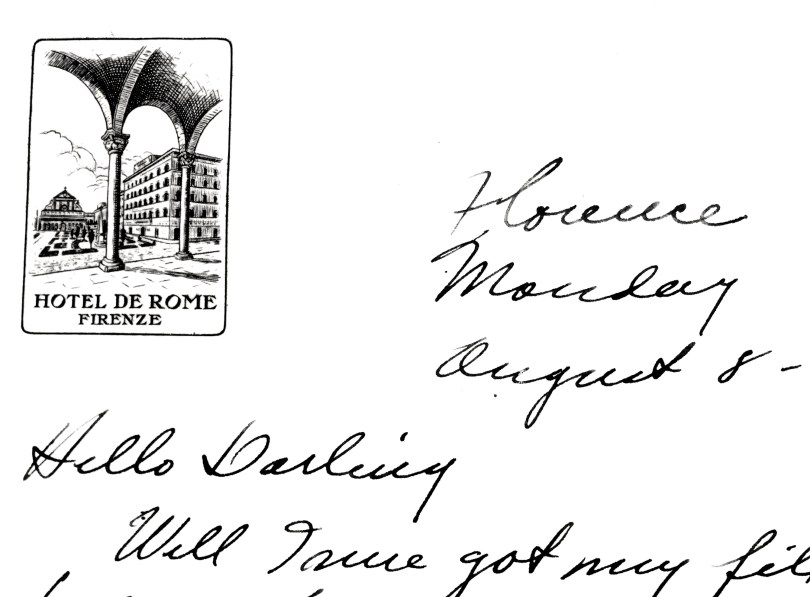 HOTEL DE ROME
FIRENZE
Florence
Monday
August 8 -
Hello Darling
Well I sure got my